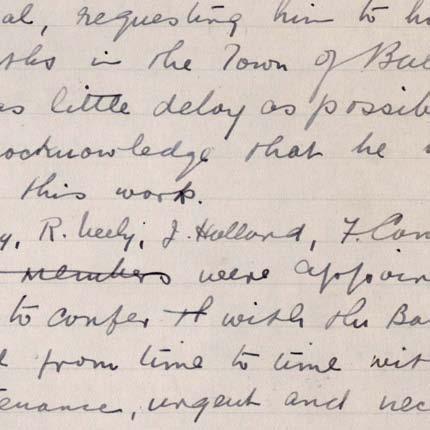 al, requesting him to h
ths in the Town of Bal
as little delay as possib
acknowledge that he
this work.
y, R. Neely, J. Holland, F. Con
members were appoin
to confer H with the Bo
d from time to time wit
tenance, urgent and nec